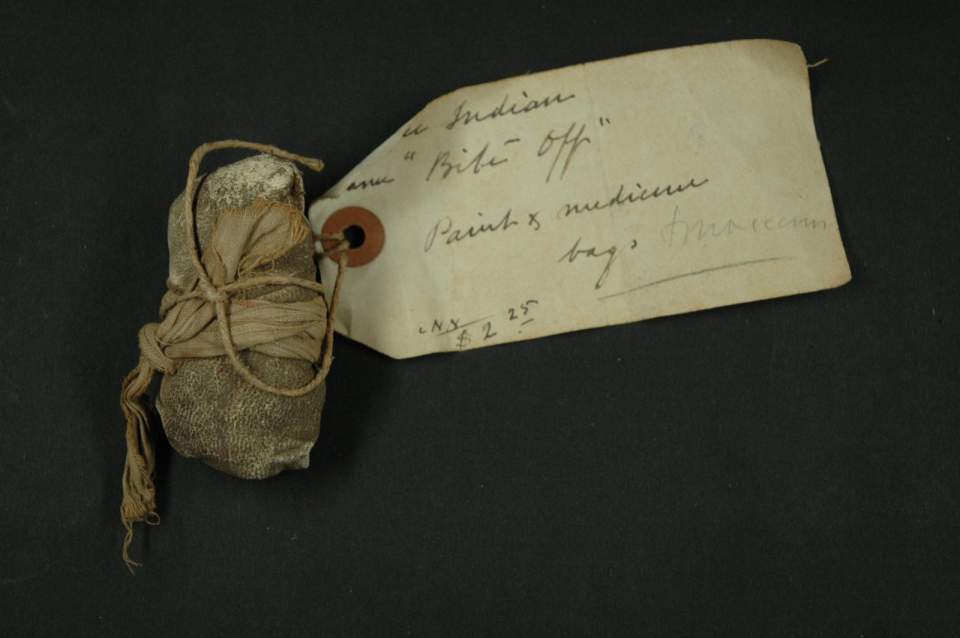 Indian
"Bite Off"
Paint & medicine
bags & moccasins
$2 25